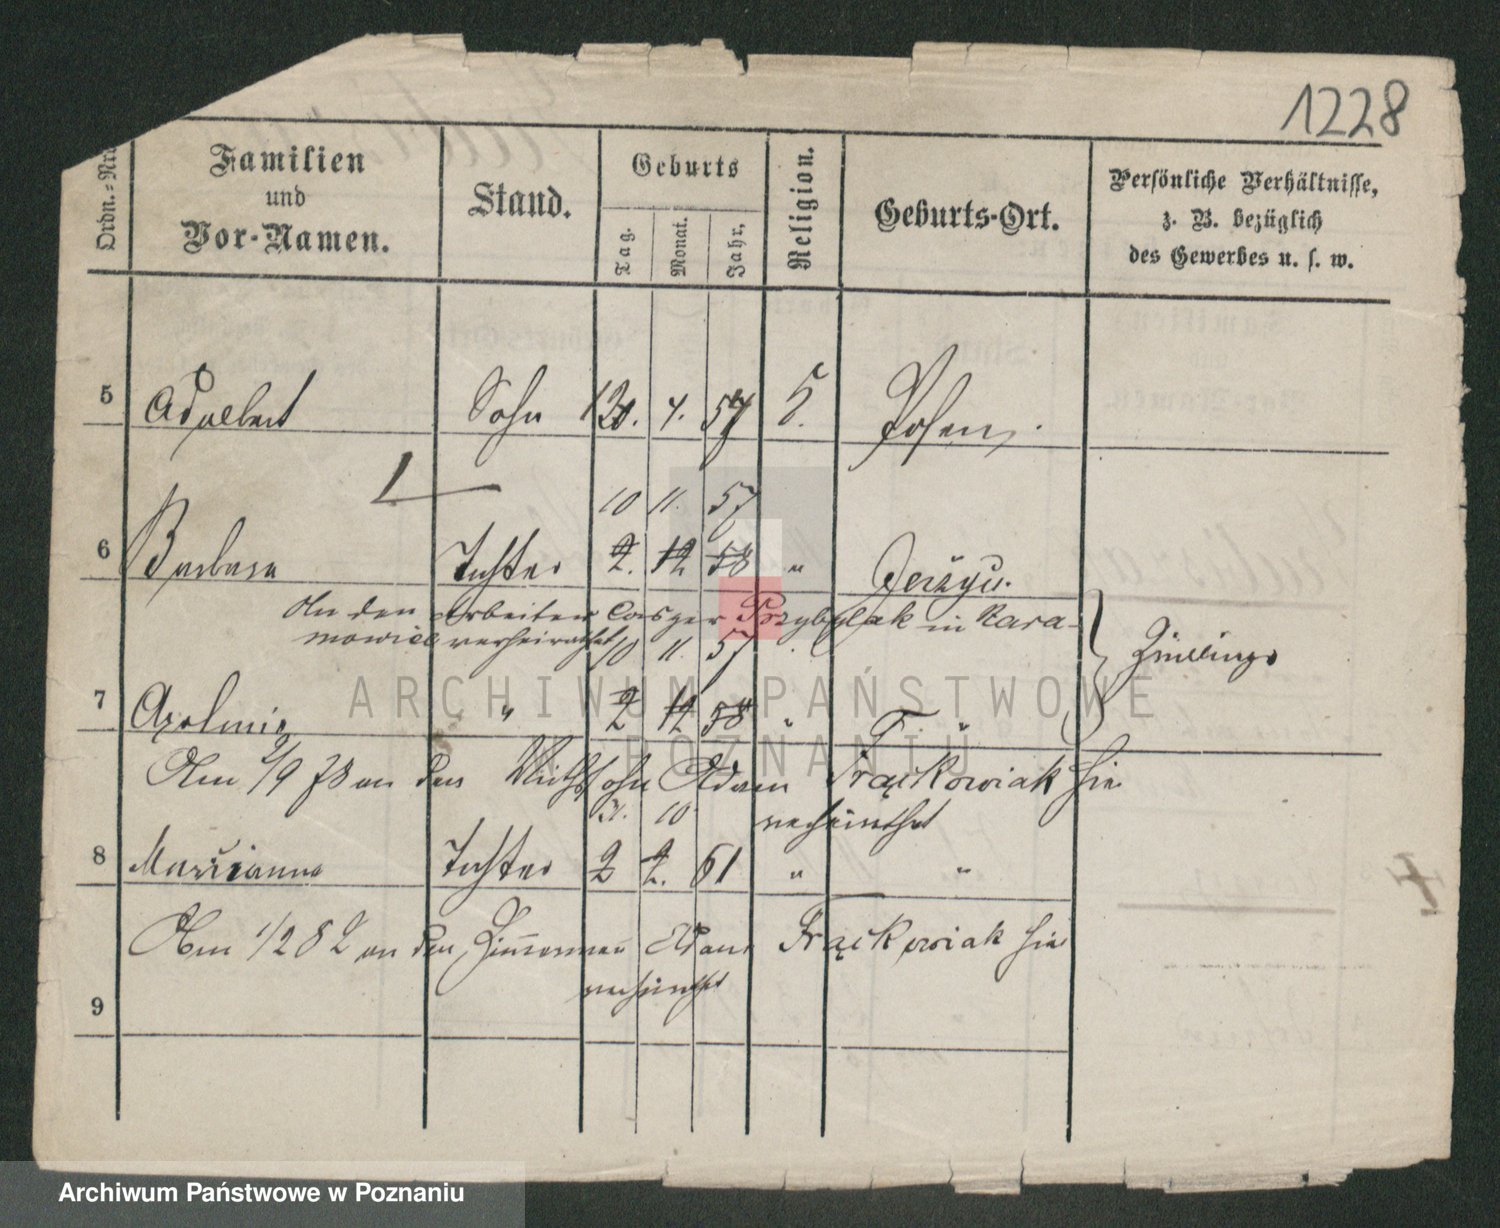 1228
Ordn.-Nro
Familien
und
Vor-Namen.
Stand.
Geburts
Tag.
Monat.
Jahr.
Religion.
Geburts-Ort.
Persönliche Verhältnisse,
z. B. bezüglich
des Gewerbes u. s. w.
5 Adalbert Sohn 4. 57 Posen
10 11. 57
6 Barbara Tochter 2. 12 58 " Jerzyce.
An den Arbeiter Casper Przybylak in Nara-
mowice verheirathet 10 11. 57
Zwillinge
7 Apolonia " 2 12 58 " "
Am 2/9 78 an den Adam Frąckowiak hier
21. 10 verheirathet
8 Marianna Tochter 2 2. 61 " "
Am 1/2 82 an den Zimmermann Adam Frąckowiak hier
verheirathet
9
ARCHIWUM PAŃSTWOWE
W POZNANIU
Archiwum Państwowe w Poznaniu